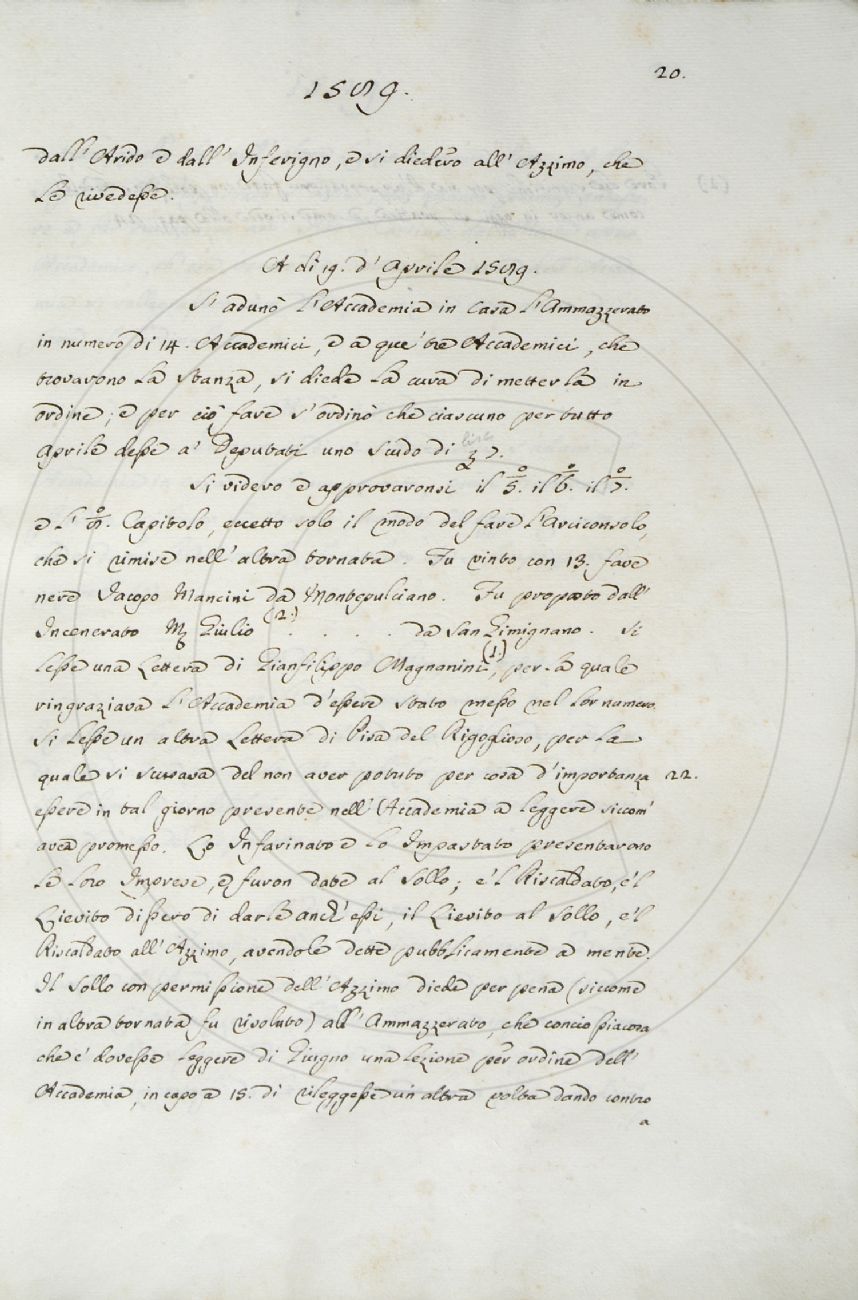 20.
1589.
dall' Arido e dall' Inferigno, e si diedero all' Azzimo, che
le rivedesse.
A dì 19. d' Aprile 1589.
S' adunò l' Accademia in Casa l' Ammazzerato
in numero di 14. Accademici, e a que' tre Accademici, che
trovarono la stanza, si diede la cura di metterla in
ordine; e per ciò fare s' ordinò che ciascuno per tutto
Aprile desse a' Deputati uno scudo di 7.
Si videro e approvaronsi il 5.° il 6.° il 7.°
e l' 8.° Capitolo, eccetto solo il modo del fare l' Arciconsolo,
che si rimise nell' altra tornata. Fu vinto con 13. fave
nere Jacopo Mancini da Montepulciano. Fu proposto dall'
Incenerato M. Giulio (2.) . . . . da San Gimignano. Si
lesse una Lettera di Gianfilippo Magnanini (1.), per la quale
ringraziava l' Accademia d' essere stato messo nel lor numero.
Si lesse un altra Lettera di Pisa del Rigoglioso, per la
quale si scusava del non aver potuto per cosa d' importanza 22.
essere in tal giorno presente nell' Accademia a leggere siccom'
avea promesso. Lo Infarinato e lo Impastato presentarono
le loro Imprese, e furon date al Sollo; e 'l Riscaldato, e 'l
Lievito dissero di darle anch' essi, il Lievito al Sollo, e 'l
Riscaldato all' Azzimo, avendole dette pubblicamente a mente.
Il Sollo con permissione dell' Azzimo diede per pena (siccome
in altra tornata fu risoluto) all' Ammazzerato, che conciossiacosa
che e' dovesse leggere di Giugno una lezione per ordine dell'
Accademia, in capo a 15. dì rileggesse un' altra volta dando contro
a